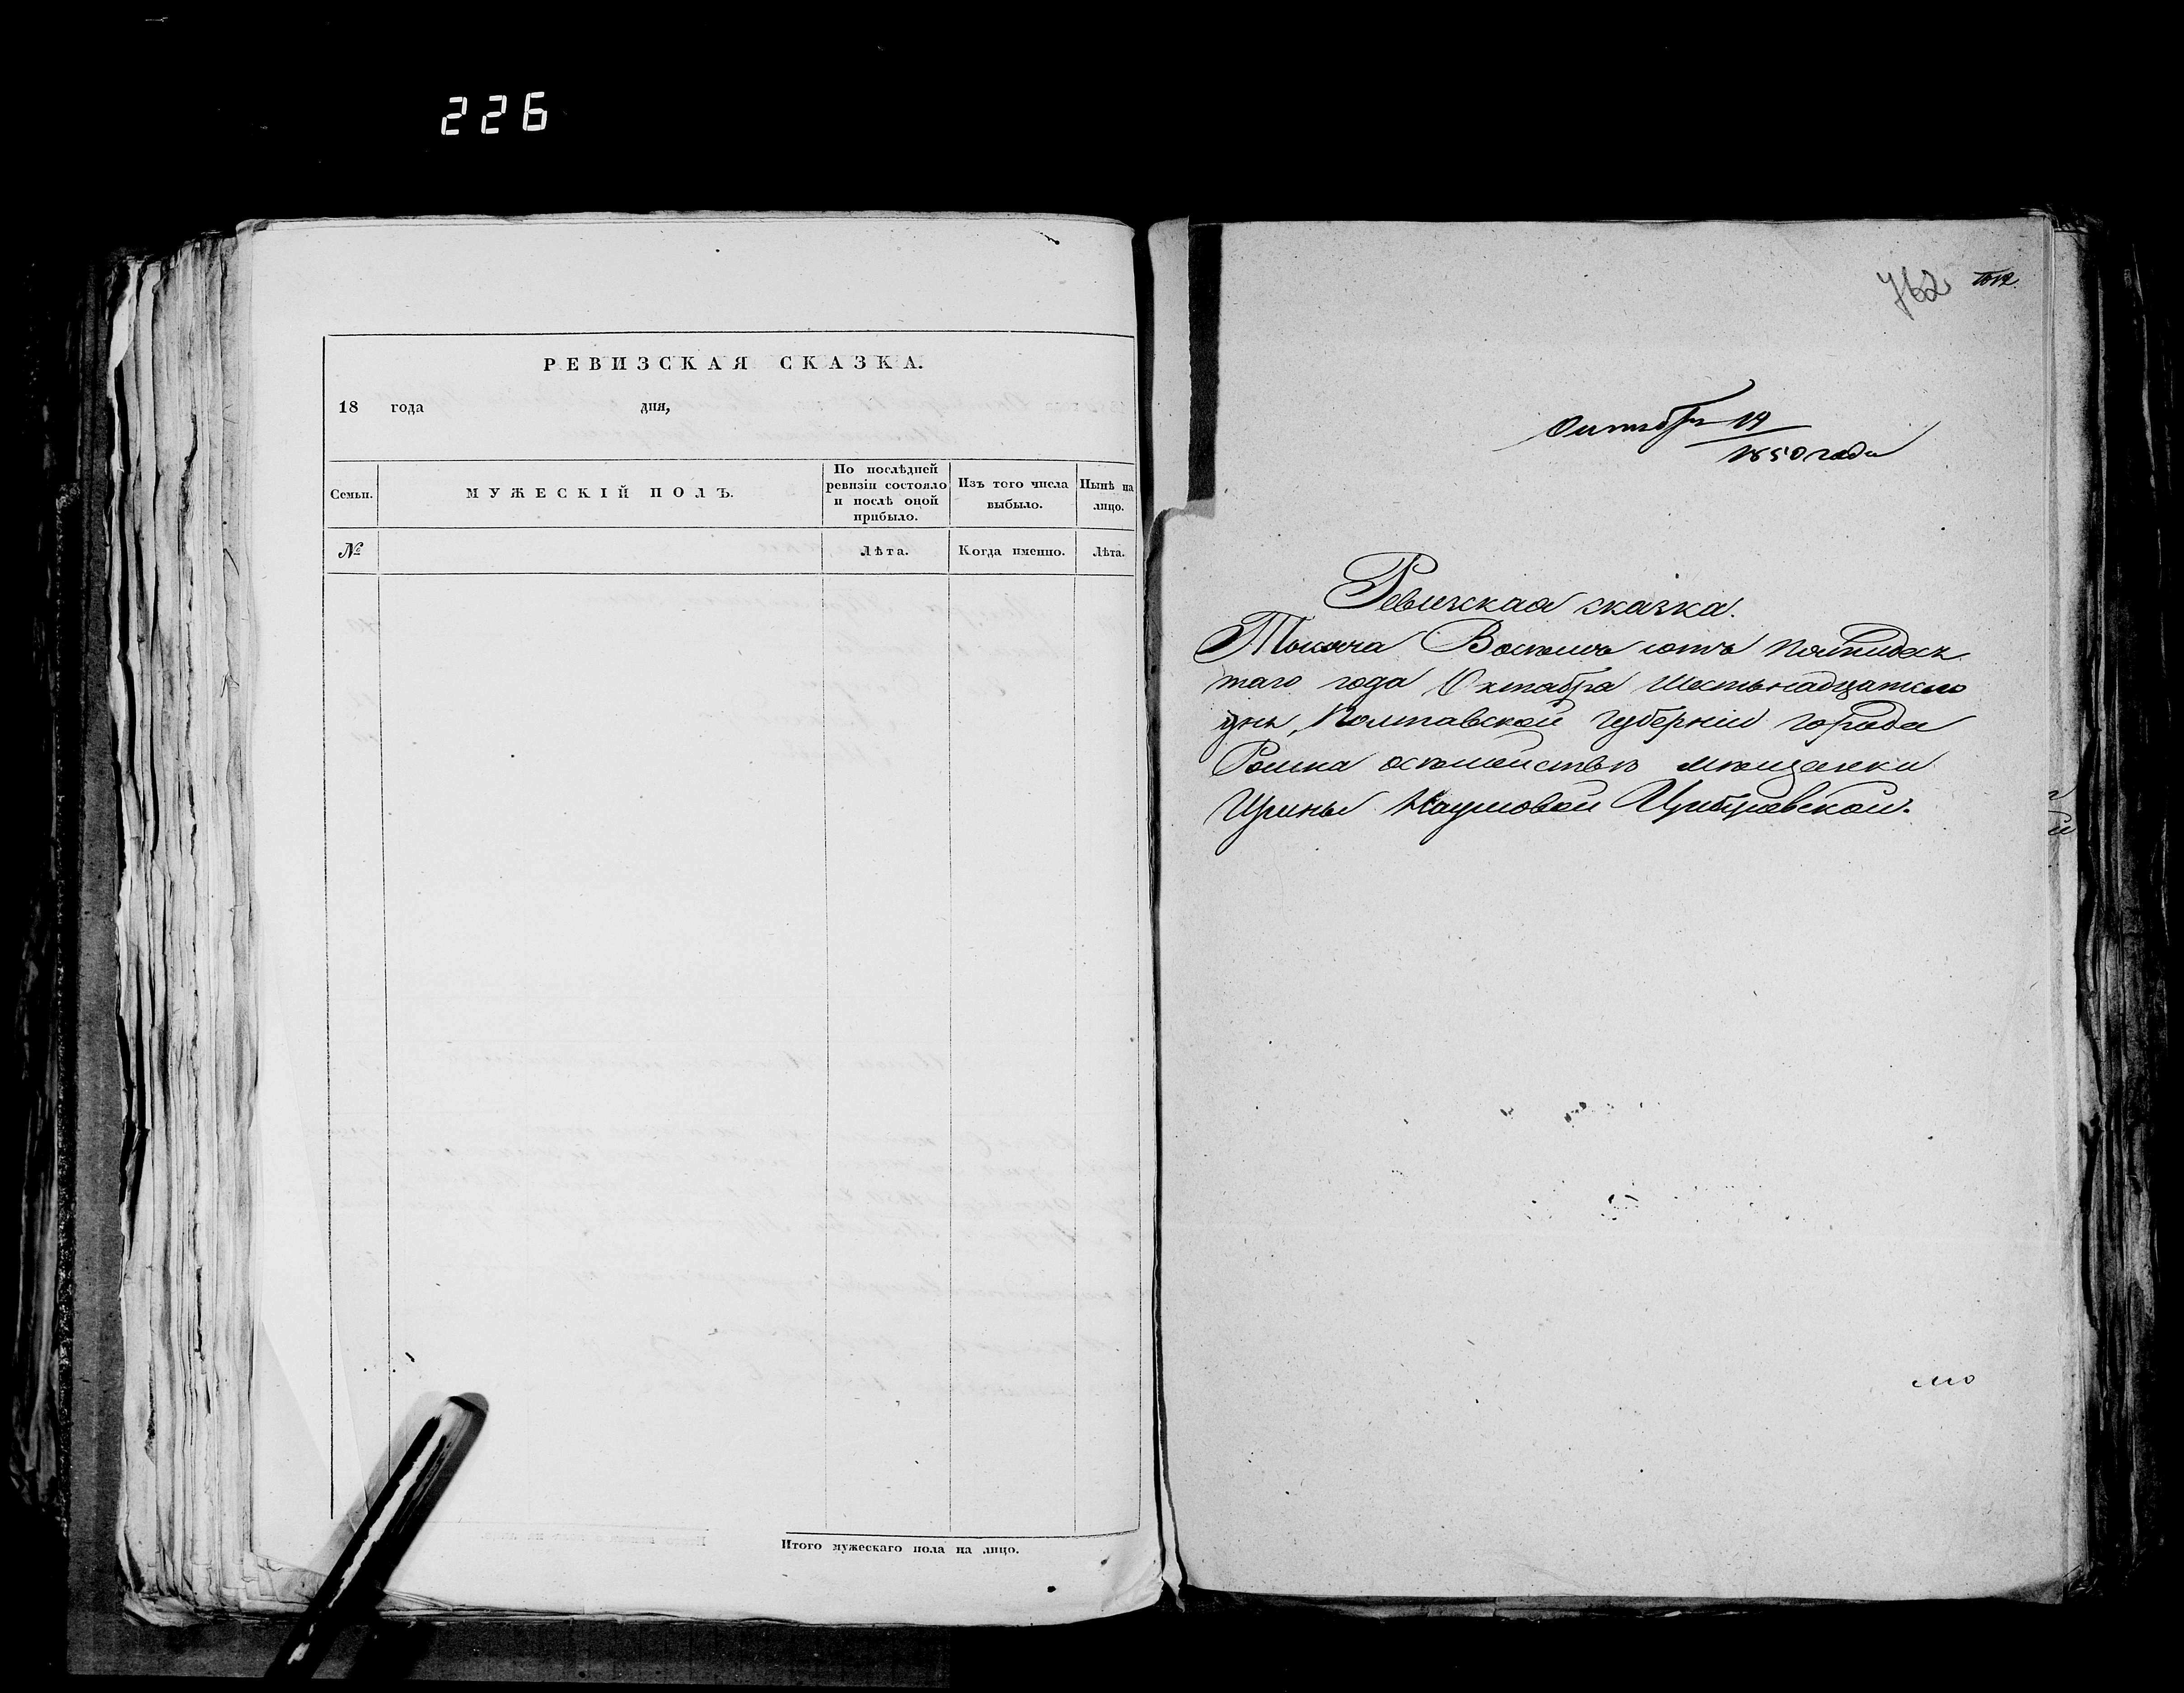 226
РЕВИЗСКАЯ СКАЗКА.
18 года дня,
Семьи.
МУЖЕСКІЙ ПОЛЪ.
По послѣдней
ревизіи состояло
и послѣ оной
прибыло.
Изъ того числа
выбыло.
Нынѣ на
лицо.
№
Лѣта.
Когда именно.
Лѣта.
Итого мужескаго пола на лицо.
762
Октября 19
1850 года
Ревизская сказка.
Тысяча Восемь сотъ пятидеся
таго года Октября Шестьнадцатаго
дня, Полтавской губерніи города
Ромна о мѣщанки
Ирины Наумовой Цибулевской.